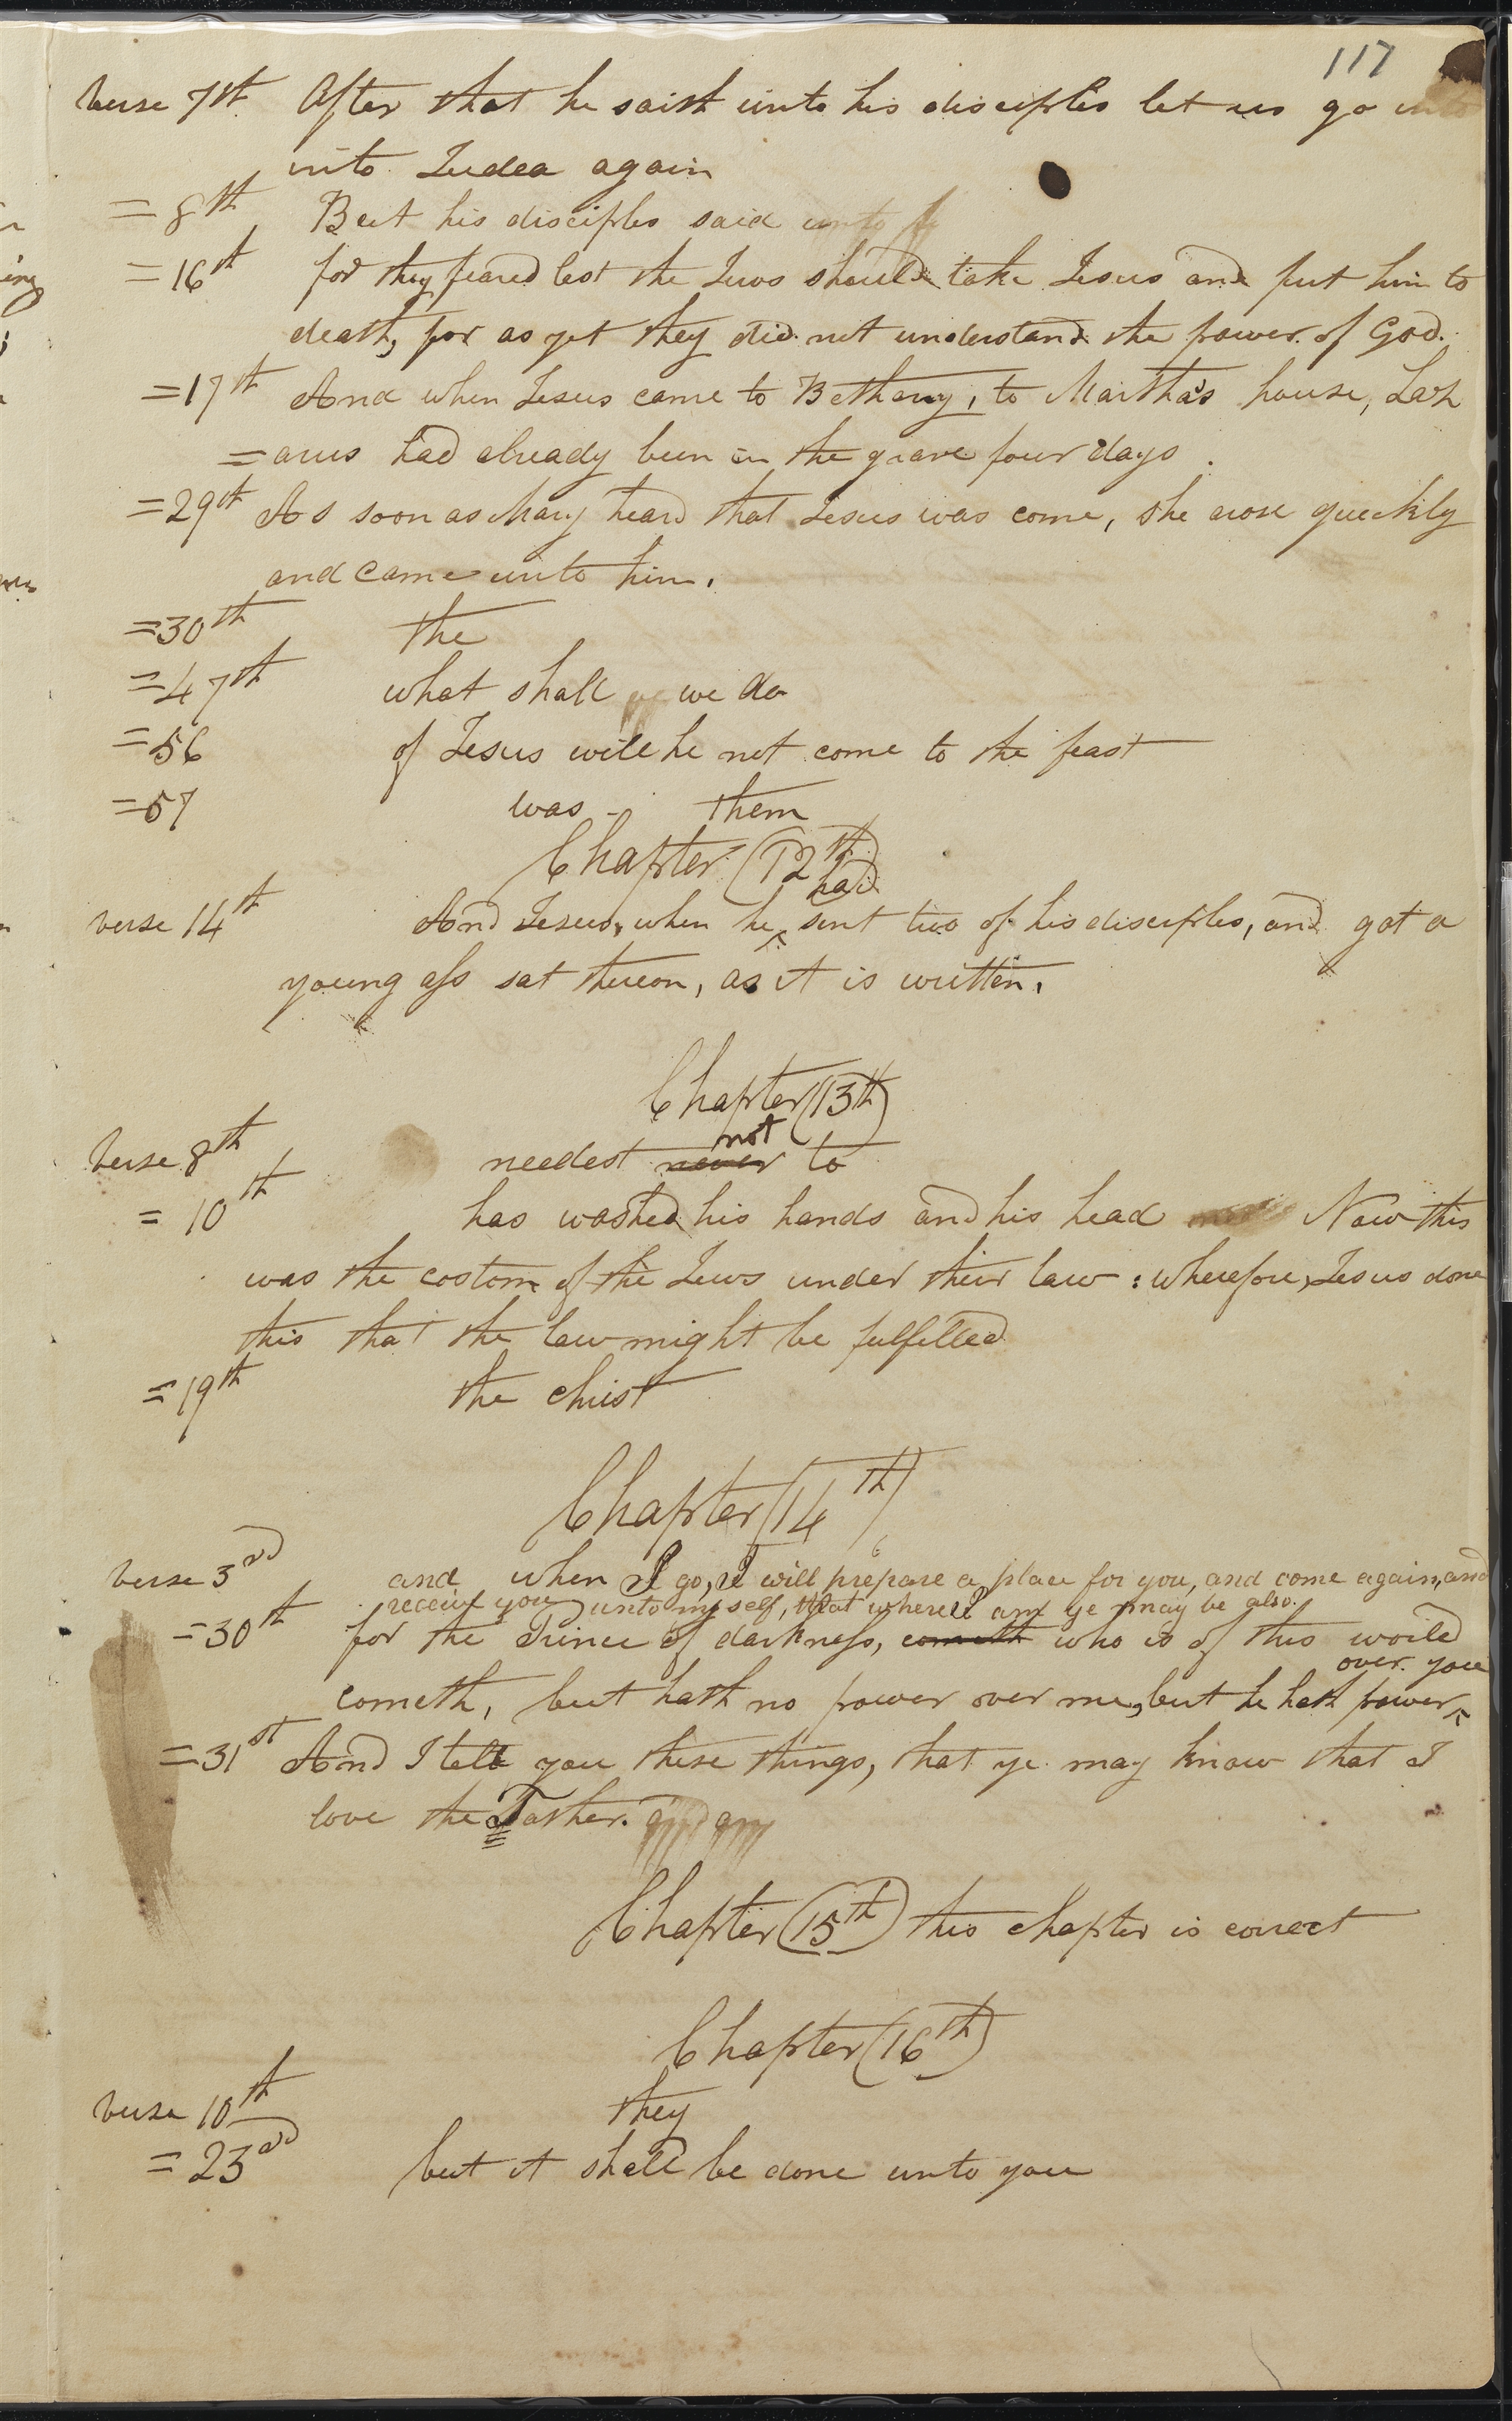 117
verse 7th After that he saith unto his disciples let us go
into Judea again
=8th But his disciples said unto
=16th for they feared lest the Jews should take Jesus and put him to
death, for as yet they did not understand the power of God.
=17th And when Jesus came to Bethany, to Martha's house, Laz
=arus had already been in the grave four days.
=29th As soon as Mary heard that Jesus was come, she arose quickly
and came unto him.
=30th the
=47th what shall we do
=56 of Jesus will he not come to the feast
=57 was - them
Chapter (12th)
had
verse 14th And Jesus, when he ^ sent two of his disciples, and got a
young ass sat thereon, as it is written.
Chapter (13th)
not
verse 8th needest never to
=10th has washed his hands and his head Now this
was the costom of the Jews under their law: wherefore, Jesus done
this that the law might be fulfilled
=19th the christ
Chapter (14th)
verse 3rd and when I go, I will prepare a place for you, and come again, and
receive you unto myself, that where I am ye may be also.
=30th for the Prince of darkness, cometh who is of this world
over you
cometh, but hath no power over me, but he hath power ^
=31st And I tell you these things, that ye may know that I
love the Father.
Chapter (15th) this chapter is correct
Chapter (16th)
verse 10th they
=23rd but it shall be done unto you